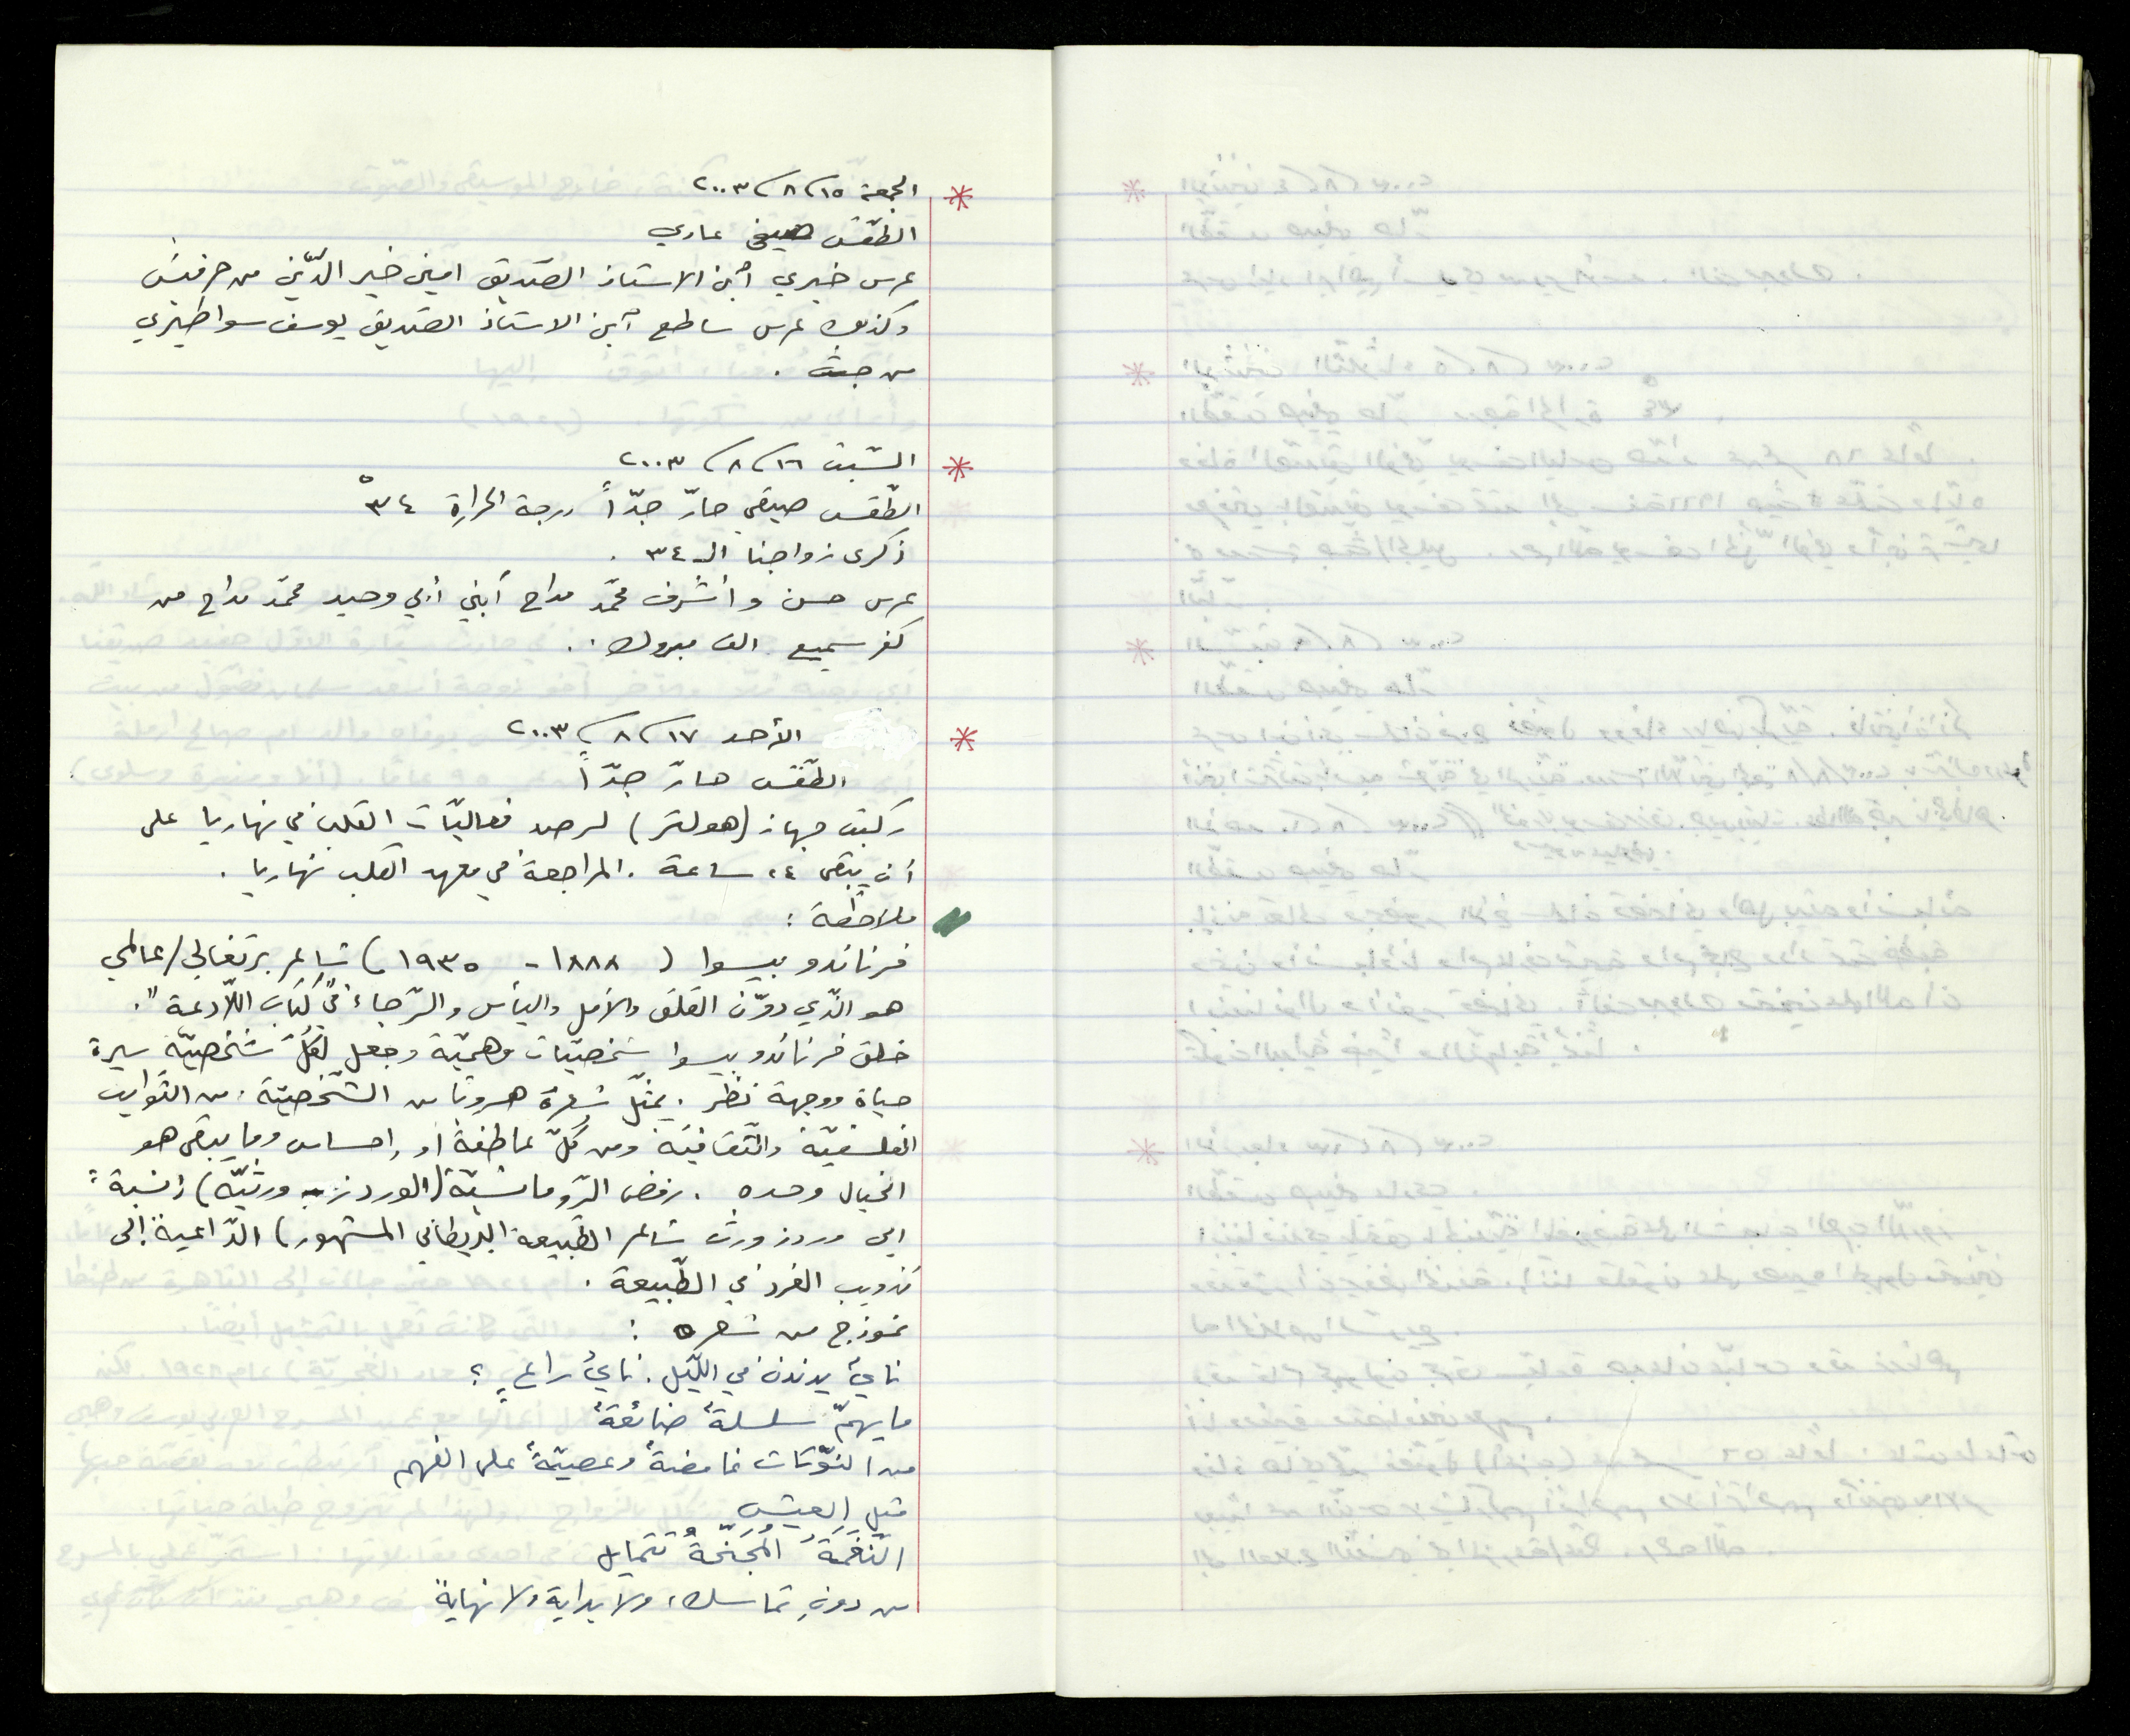 الجمعة ١٥/ ٨/ ٢٠٠٣
الطّقس صيفي عادي
عرس خيري أبن الاستاذ الصّديق امين خير الدّين من حرفيش
وكذلك عرس ساطع أبن الاستاذ الصّديق يوسف سواطيري
من جث .
السّبت ١٦/ ٨/ ٢٠٠٣
الطّقس صيفي حارّ جدّاً درجة الحرارة ٣٤°
ذكرى زواجنا الـ ٣٤ .
عرس حسن وأشرف محمّد مداح أبني أبي وحيد محمّد مداح من
كفر سميع الف مبروك .
الأحد ١٧/ ٨/ ٢٠٠٣
الطّقس حارّ جدّاً
ركبت جهاز (هولتر) لرصد فعاليّات القلب في نهاريا على
أن يبقى ٢٤ ساعة . المراجعة في معهد القلب نهاريا .
ملاحظة :
فرناندو بيسوا ( ١٨٨٨ - ١٩٣٥ ) شاعر برتغالي/عالمي
هو الّذي دوّن القلق والأمل واليأس والرّجاء في "كتاب اللّادعة".
خلق فرناندو بيسوا شخصيّات وهميّة وجعل لكلّ شخصيّة سيرة
حياة ووجهة نظر . يمثّل شعره هروبا من الشّخصيّة ، من الثّوابت
الفلسفيّة والثّقافيّة ومن كلّ عاطفة أو إحساس وما يبقى هو
الخيال وحده . رفض الرّومانسيّة (الوردزورثيّة) (نسبة :
الى وردزورث شاعر الطّبيعة البريطاني المشهور) الدّاعية إلى
تذويب الفرد في الطّبيعة .
نموذج من شعره :
نايٌ يدندن في اللّيل . نايُ راعٍ ؟
ما يهمّ سلسلةٌ ضائعةٌ
من النّوتات غامضةٌ وعصيّةٌ على الفهم
مثل العيش
النّغمةُ المُجنّحةُ تتمايل
من دونِ تماسك، ولا بداية ولا نهايةً